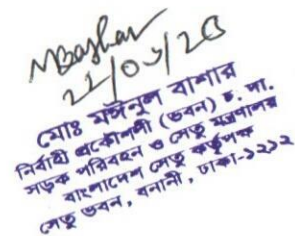 MBashar
মোঃ মঈনুল বাশার
নির্বাহী প্রকৌশলী (ভবন) চ. দা.
সড়ক পরিবহন ও সেতু মন্ত্রণালয়
বাংলাদেশ সেতু কর্তৃপক্ষ
সেতু ভবন, বনানী, ঢাকা-১২১২